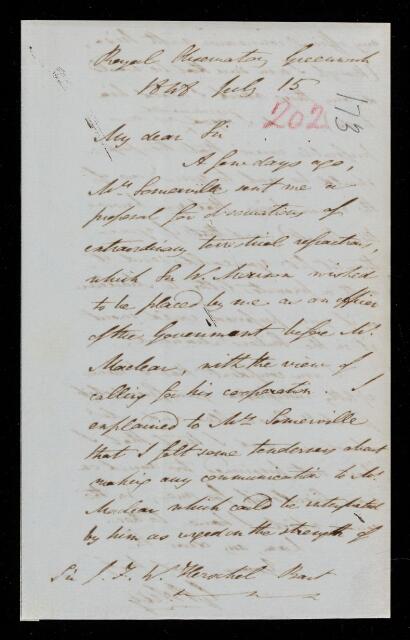 Royal Observatory Greenwich
1848 July 15
202
173
My dear Sir
A few days ago,
Mrs Somerville sent me a
proposal for observations of
extraordinary terrestrial refractions,
which Sir W. wished
to be placed by me as an officer
of the Government before Mr
Maclear, with the view of
calling for his cooperation. I
explained to Mrs Somerville
that I felt some tenderness about
making any communication to Mr
Maclear which could be interpreted
by him as urged on the strength of
Sir J. F. W. Herschel Bart